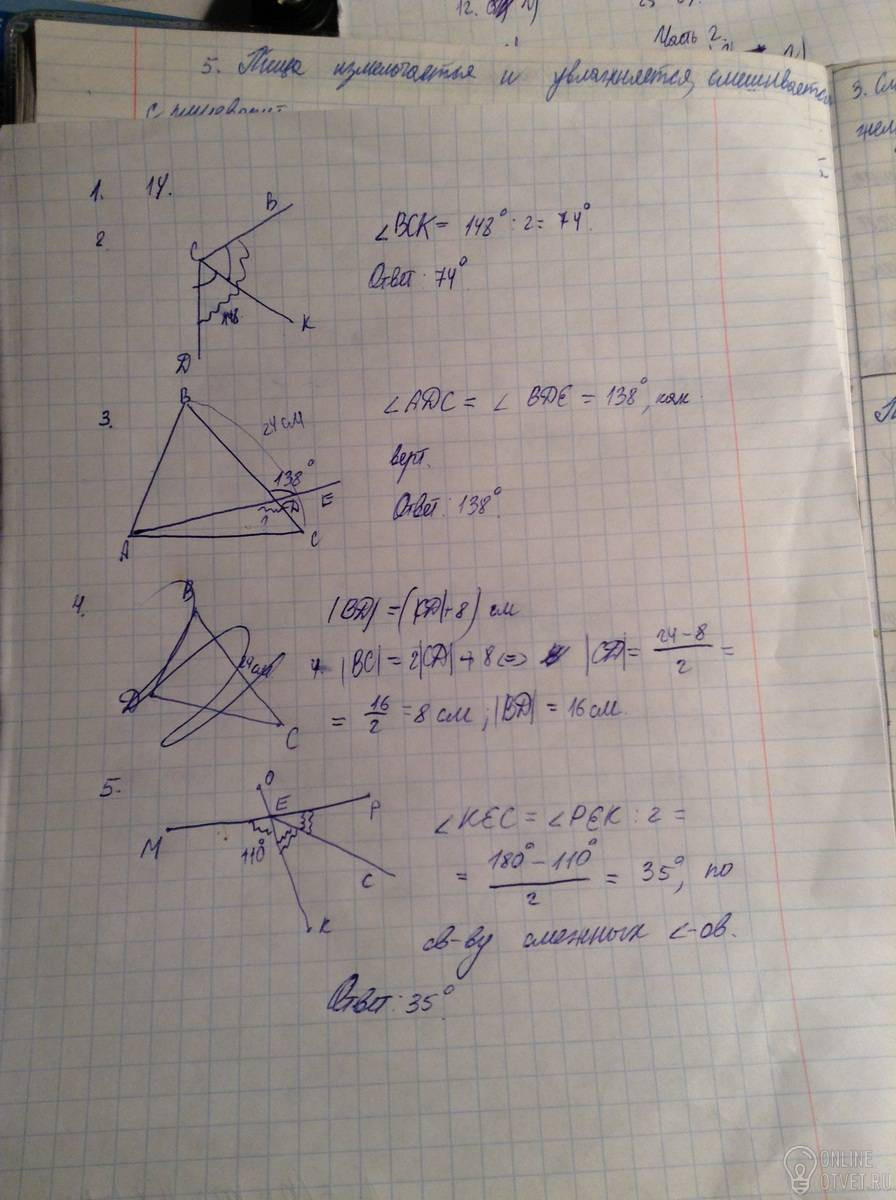 Часть 2.
5. Пища измельчается и увлажняется, смешивается
1. 14.
2.
B
C
148
K
D
∠BCK = 148° : 2 = 74°.
Ответ: 74°
3.
B
24 см
138°
E
D
?
A
C
∠ADC = ∠BDE = 138°, как
верт.
Ответ: 138°.
4.
B
24 см
D
C
|BD| = (|CD| + 8) см
|BC| = 2|CD| + 8 <=> |CD| = 24-8/2 =
= 16/2 = 8 см; |BD| = 16 см.
5.
O
E
P
M
110°
C
K
∠KEC = ∠PEK : 2 =
= 180° - 110°/2 = 35°, по
св-ву смежных ∠-ов.
Ответ: 35°
ONLINE
OTVET.RU